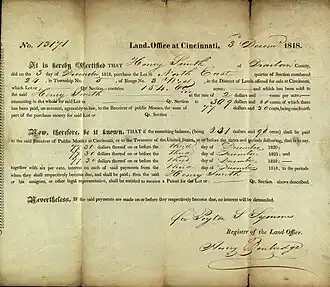 No. 13171 Land-Office at Cincinnati, 3d Decemr 1818.
It is hereby Certified THAT Henry Smith of Dearborn County
did on the 3 day of December 1818, purchase the Lot or North East quarter of Section numbered
24 in Township No. 5, of Range No. 3 West in the District of Lands offered for sale at Cincinnati,
which Lot or Qr. Section contains 154. acres and
the said Henry Smith at the rate of 2 dollars and cents per acre—
amounting in the whole for said Lot or Qr. Section to 309 dollars 20 cents of which there
has been paid, on account, agreeably to law, to the Receiver of Public Monies, the sum of 77 dollars cents as
part of the purchase money for said Lot or Qr. Section.
Now, therefore, be it known, THAT if the remaining balance, being 231 dollars 90 cents shall be paid
to the said Receiver of Public Monies at Cincinnati, or to the Treasurer of the United States, at or before the dates and periods following, that is to say,
77 30 dollars thereof on or before the third day of December 1820;
77 30 dollars thereof on or before the third day of December 1821; and
77 30 dollars thereof on or before the third day of December 1822—
together with six per cent. interest on each of said sums, from the third day of December 1818, to the periods
when they shall respectively become due, and shall be paid; then the said Henry Smith
or his assignee, or other legal representative, shall be entitled to receive a Patent for the Lot or Qr. Section above described.
Nevertheless, If the said payments are made on or before they respectively become due, no interest will be demanded.
for Peyton S Symmes
Register of the Land Office.
Henry